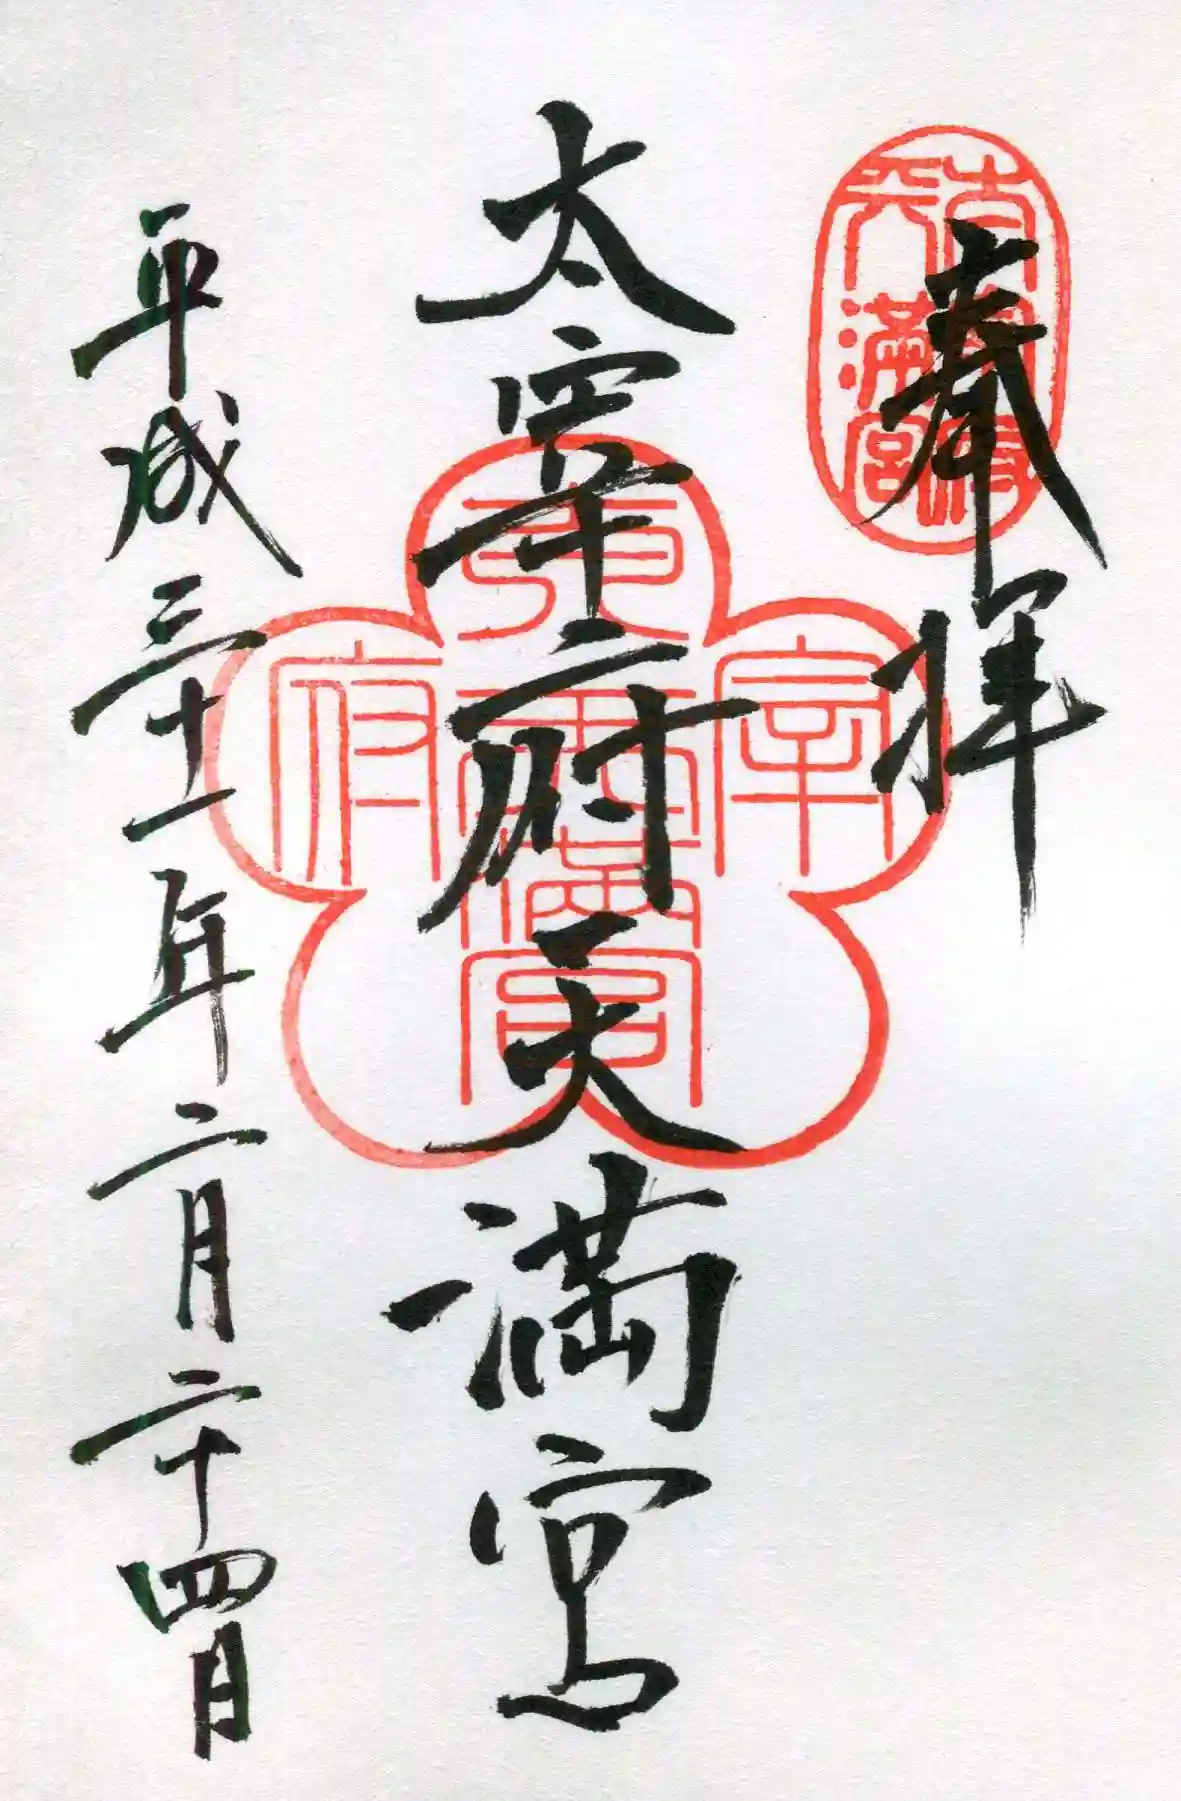 奉拝
天満宮
太宰府天満宮
宰府
天満宮
平成三十一年二月二十四日